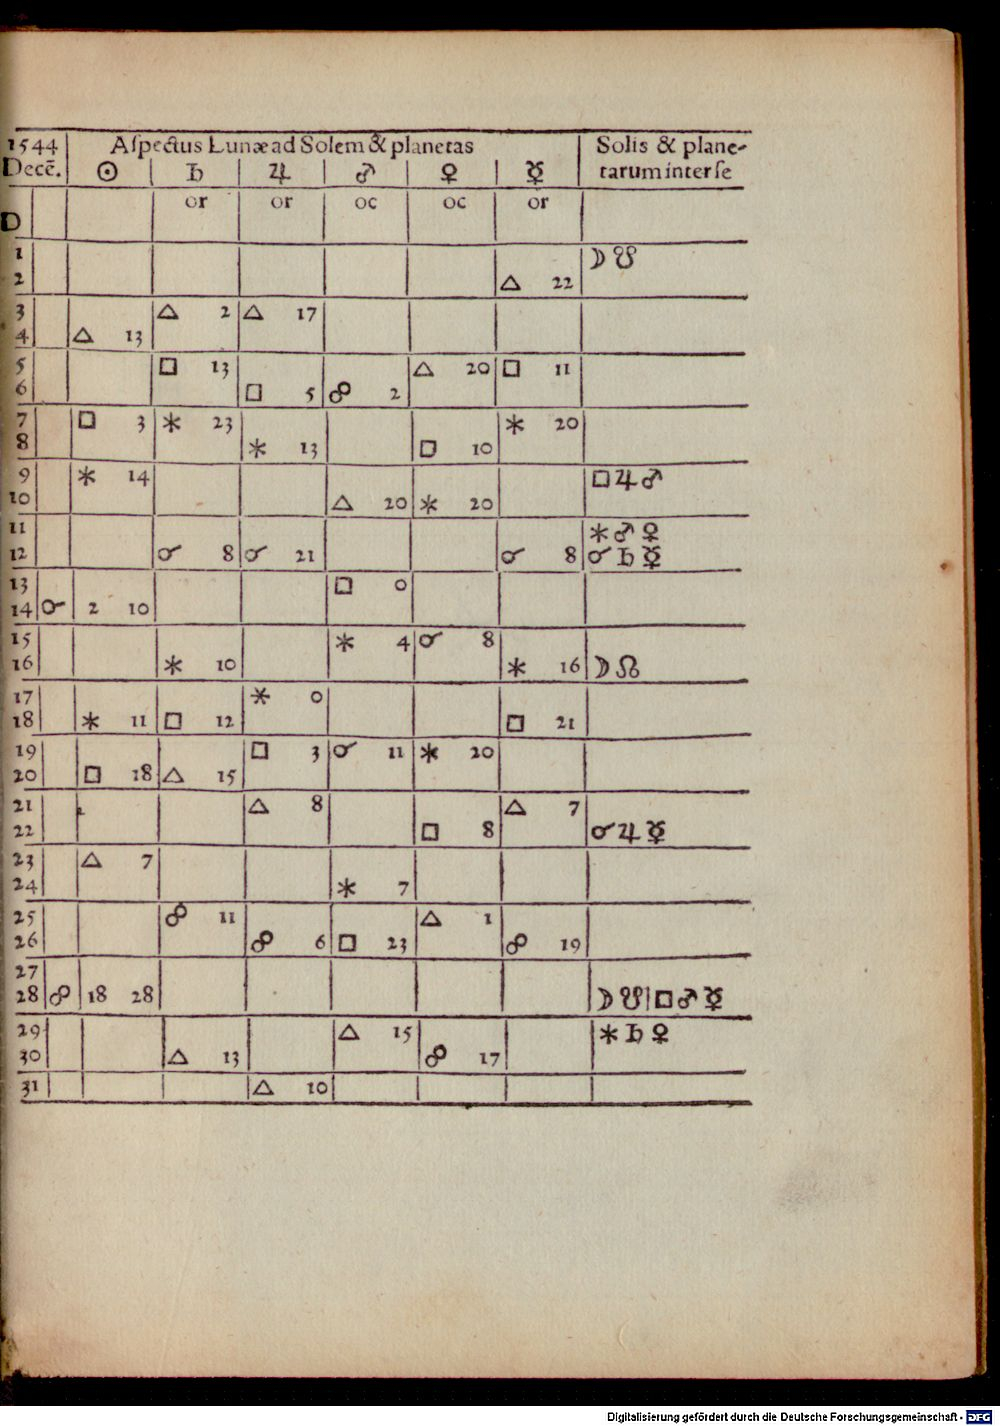 1544 Aſpectus Lunæ ad Solem & planetas Solis & plane-
Decẽ. ☉ ♄ ♃ ♂ ♀ ☿ tarum inter ſe
D or or oc oc or
1 ☽ ☋
2 △ 22
3 △ 2 △ 17
4 △ 13
5 □ 13 △ 20 □ 11
6 □ 5 ☍ 2
7 □ 3 ⚹ 23 ⚹ 20
8 ⚹ 13 □ 10
9 ⚹ 14 □ ♃ ♂
10 △ 20 ⚹ 20
11 ⚹ ♂ ♀
12 ☌ 8 ☌ 21 ☌ 8 ☌ ♄ ☿
13 □ 0
14 ☌ 2 10
15 ⚹ 4 ☌ 8
16 ⚹ 10 ⚹ 16 ☽ ☊
17 ⚹ 0
18 ⚹ 11 □ 12 □ 21
19 □ 3 ☌ 11 ⚹ 20
20 □ 18 △ 15
21 △ 8 △ 7
22 □ 8 ☌ ♃ ☿
23 △ 7
24 ⚹ 7
25 ☍ 11 △ 1
26 ☍ 6 □ 23 ☍ 19
27
28 ☍ 18 28 ☽ ☋ | □ ♂ ☿
29 △ 15 ⚹ ♄ ♀
30 △ 13 ☍ 17
31 △ 10
Digitalisierung gefördert durch die Deutsche Forschungsgemeinschaft - DFG